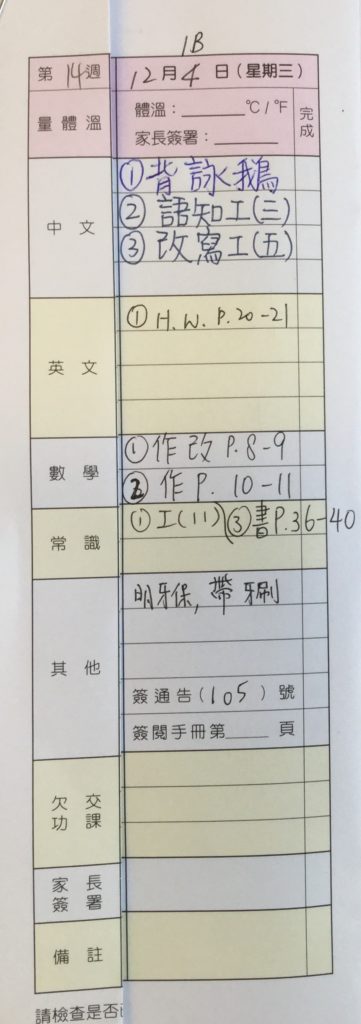 1B
第 14 週 12 月 4 日 (星期三)
量體溫 體溫：______°C / °F 完成
家長簽署：______
中文 ① 背詠鵝
② 語知工(三)
③ 改寫工(五)
英文 ① H.W. P.20-21
數學 ① 作改 P.8-9
② 作 P. 10-11
常識 ① 工(11) (③ 書P.36-40
其他 明牙保, 帶牙刷
簽通告 (105) 號
簽閱手冊第____頁
欠交功課
家長簽署
備註
請檢查是否